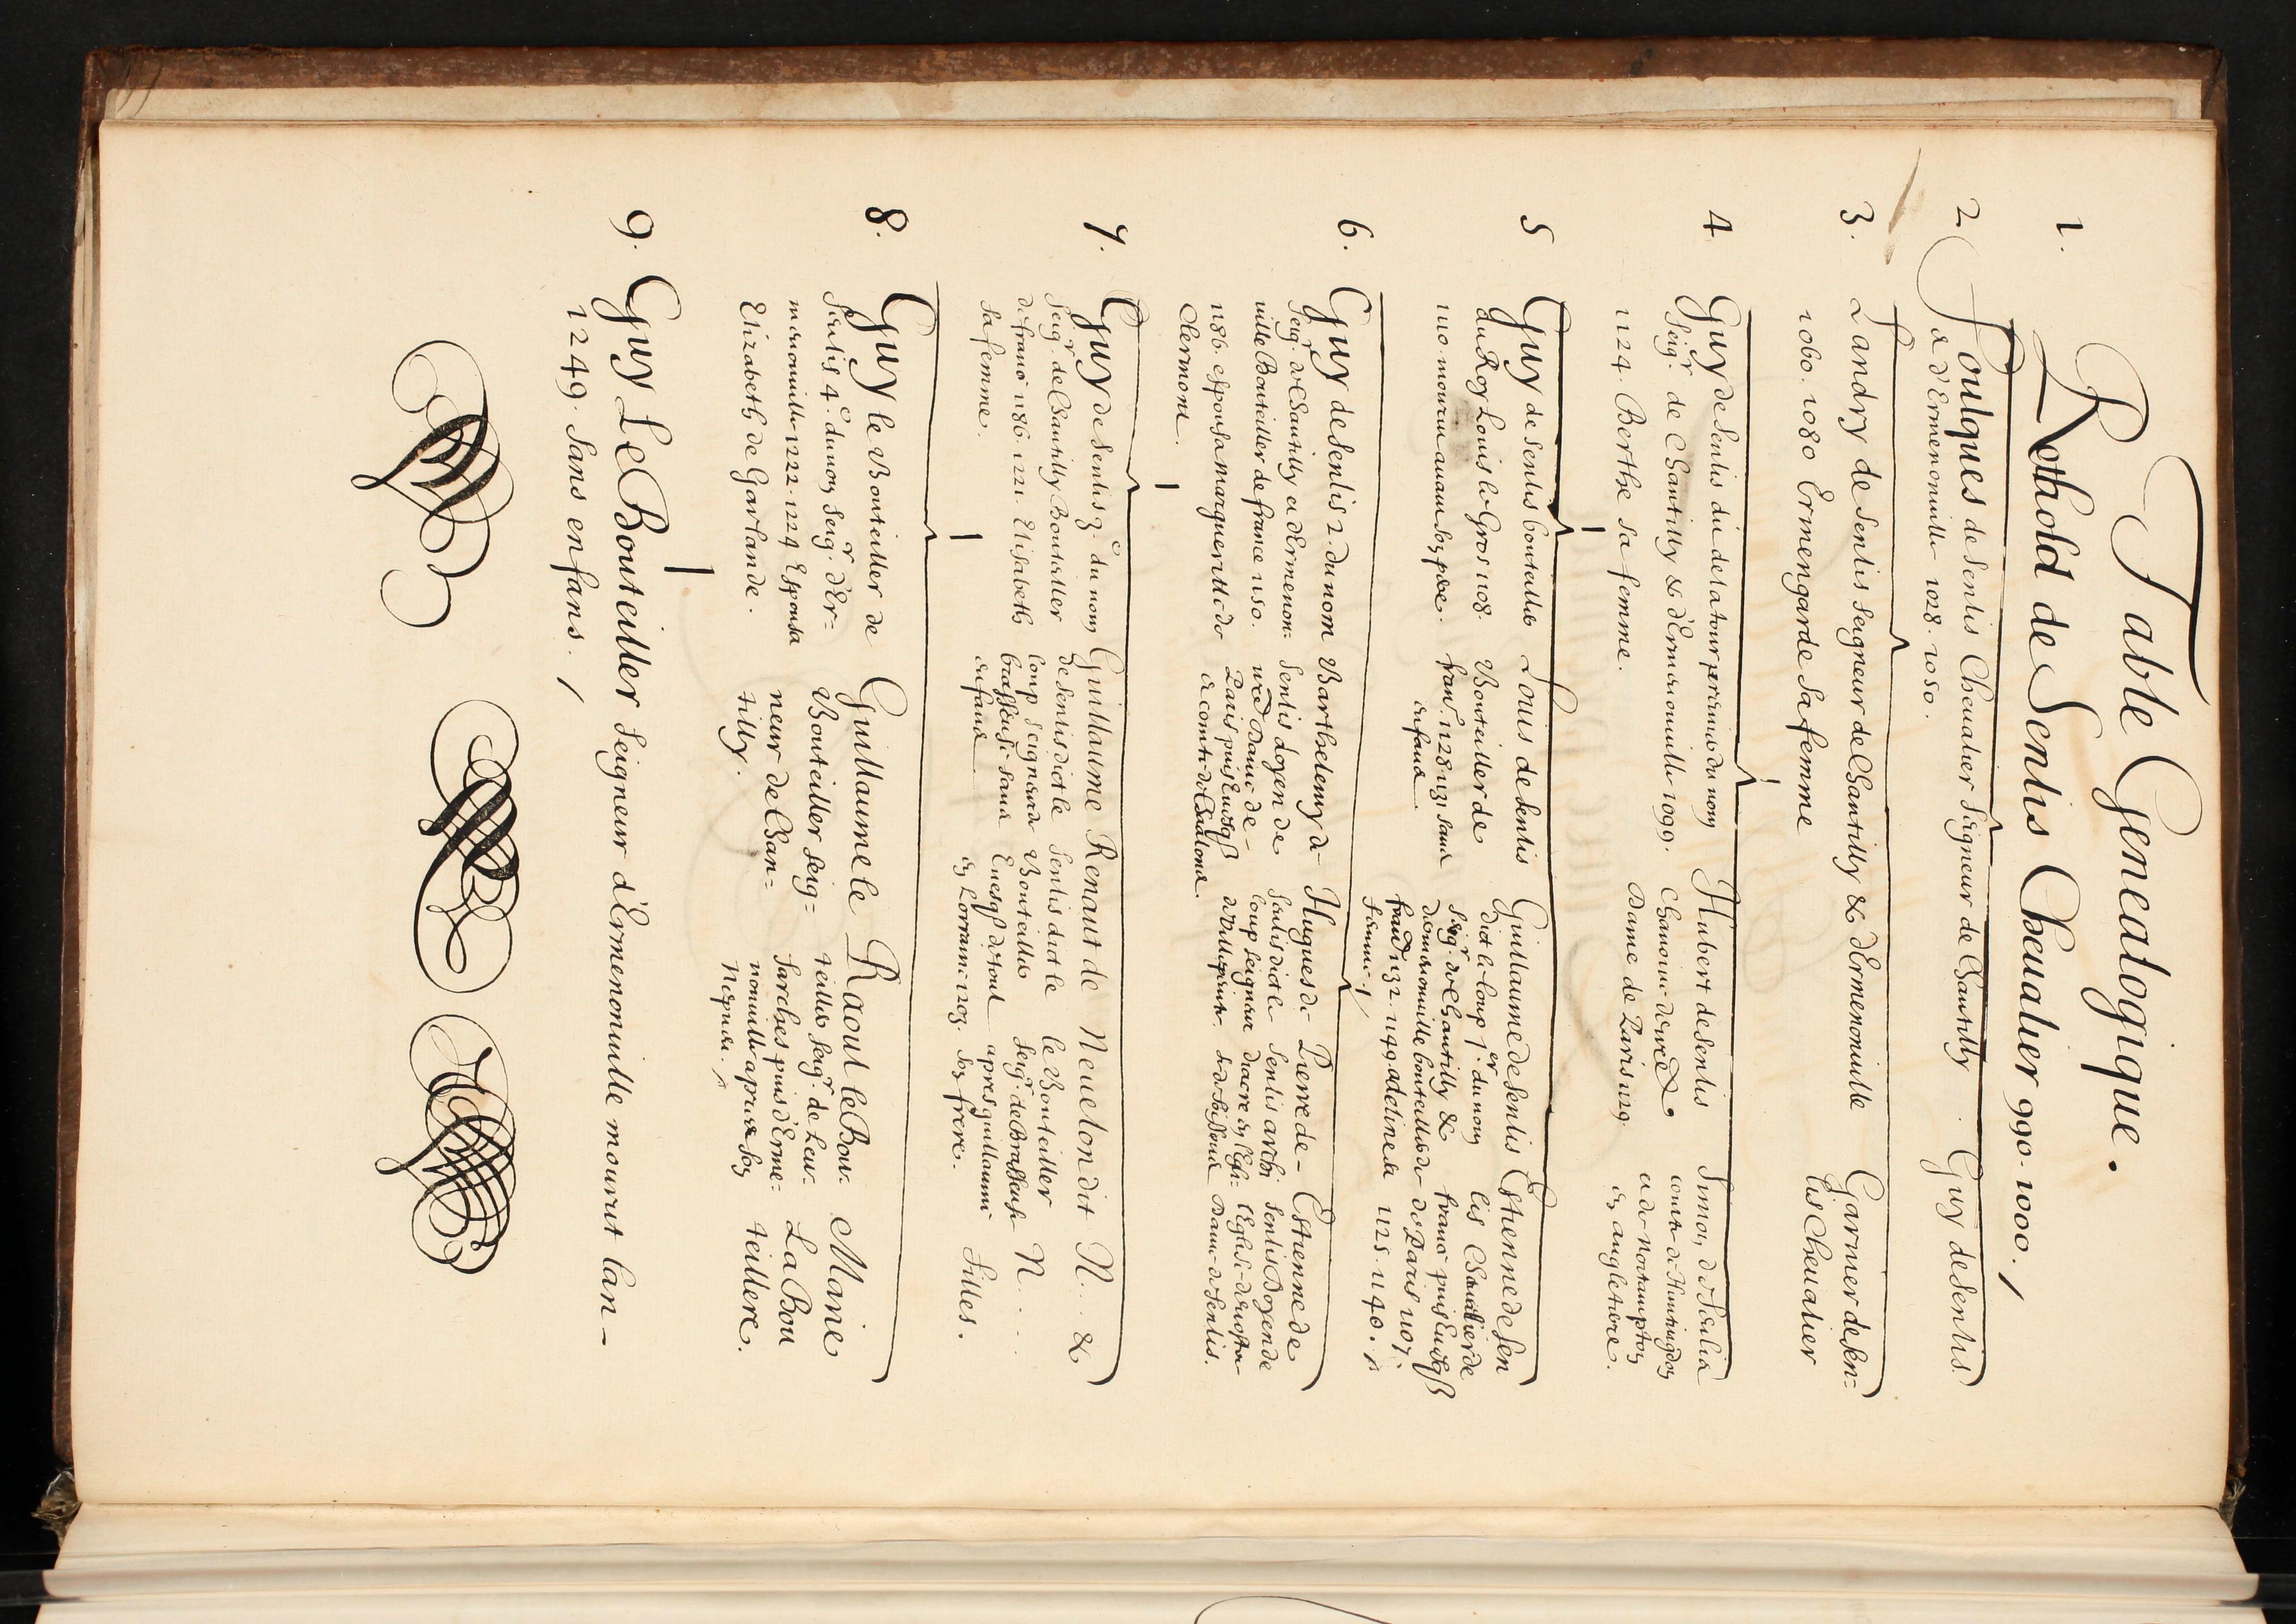 Table Genealogique.
1. Rothold de Senlis Cheualier 990. 1000. /
2 Foulques de Senlis Cheualier Seigneur de Chantilly
& d'Ermenonuille 1028. 1050.
Guy de Senlis
3. Landry de Senlis Seigneur de Chantilly & d'Ermenonuille
1060. 1080 Ermengarde sa femme
Garnier de Sen=
lis Cheualier
4 Guy de Senlis dit de la tour premier du nom
Seigr. de Chantilly & d'Ermenonuille 1099.
1124. Berthe sa femme.
Hubert de Senlis
Chanoine de nre
Dame de Paris 1129.
Simon de Senlis
comte de Huntingdon
et de Nortampton
en angleterre.
5 Guy de Senlis bouteiller
du Roy Louis le Gros 1108.
1110. mourut auant son pere.
Louis de Senlis
Bouteiller de
franc. 1128. 1131. sans
enfans.
Guillaume de Senlis
dict le loup 1er. du nom
Seigr. de Chantilly &
dermenonuille bouteiller de
1132. 1149 adeline sa
femme. /
Estienne de Sen
lis Chancelier de
france puis Euesq
de Paris 1107.
1125. 1140. /
6. Guy de Senlis 2 du nom
Seigr. de Chantilly et d'Ermenon:
uille Bouteiller de france 1150.
1186. espousa Margueritte de
Clermont.
Barthelemy de
Senlis doyen de
nre Dame de
Paris puis Euesq
et comte de Chaalons.
Hugues de
Senlis dict le
loup seigneur
de Villepinte.
Pierre de
Senlis archi
diacre en l'Egli-
se de Soissons
Estienne de
Senlis Doyen de
l'Eglise de nostre
Dame de Senlis.
7. Guy de Senlis 3.e du nom
Seigr. de Chantilly Bouteiller
de france 1186. 1221. Elisabeth
sa femme.
Guillaume
de Senlis dict le
loup seigneur
brasseuse sans
enfans.
Renaut de
Senlis dict le
Bouteiller
Euesq de toul
en Lorraine 1203.
Neuelon dit
le Bouteiller
Seigr. de Brasseuse
apres guillaume
son frere.
N... &
N....
filles.
8. Guy le Bouteiller de
Senlis 4.e du nom Seigr. d'Er=
menonuille 1222. 1224 Espousa
Elizabeth de Garlande.
Guillaume le
Bouteiller Seig=
neur de Chan=
tilly.
Raoul le Bou-
teiller Seigr. de Leu-
sarches puis d'Erme=
nonuille apres son
Nepueu. /
Marie
La Bou
teillere.
9. Guy Le Bouteiller Seigneur d'Ermenonuille mourut l'an-
1249. sans enfans. /